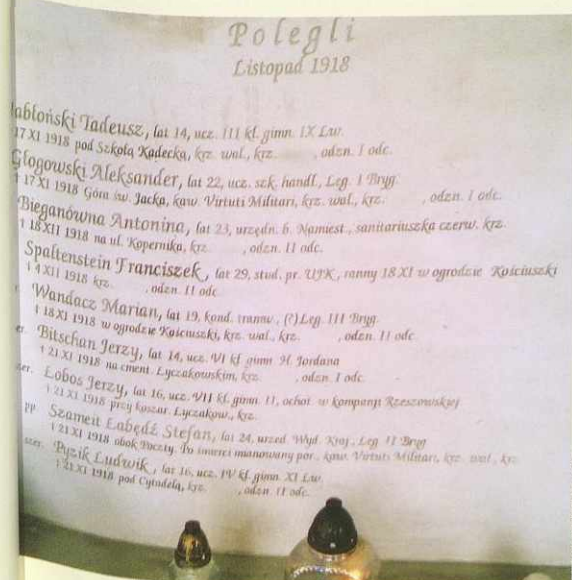 Polegli
Listopad 1918
abłoński Tadeusz, lat 14, ucz. III kl. gimn. IX Lw.
17 XI 1918 pod Szkołą Kadecką, krz. wal., krz. , odzn. I odc.
Głogowski Aleksander, lat 22, ucz. szk. handl., Leg. I Bryg.
† 17 XI 1918 Góra św. Jacka, kaw. Virtuti Militari, krz. wal., krz. , odzn. I odc.
Bieganówna Antonina, lat 23, urzędn. b. Namiest., sanitariuszka czerw. krz.
† 18 XII 1918 na ul. Kopernika, krz. , odzn. II odc.
Spaltenstein Franciszek, lat 29, stud. pr. UJK, ranny 18 XI w ogrodzie Kościuszki
† 4 XII 1918 krz. , odzn. II odc.
Wandacz Marian, lat 19, kond. tramw., (?) Leg. III Bryg.
† 18 XI 1918 w ogrodzie Kościuszki, krz. wal., krz. , odzn. II odc.
Bitschan Jerzy, lat 14, ucz. VI kl. gimn. H. Jordana
† 21 XI 1918 na cment. Łyczakowskim, krz. , odzn. I odc.
szer. Łobos Jerzy, lat 16, ucz. VII kl. gimn. II, ochot. w kompanji Rzeszowskiej
† 21 XI 1918 przy koszar. Łyczakow., krz.
pp Szameit Łabędź Stefan, lat 24, urzęd. Wyd. Kraj., Leg. II Bryg.
† 21 XI 1918 obok Poczty. Po śmierci mianowany por., kaw. Virtuti Militari, krz. wal., krz.
szer. Pyzik Ludwik, lat 16, ucz. IV kl. gimn. XI Lw.
† 21 XI 1918 pod Cytadelą, krz. , odzn. II odc.